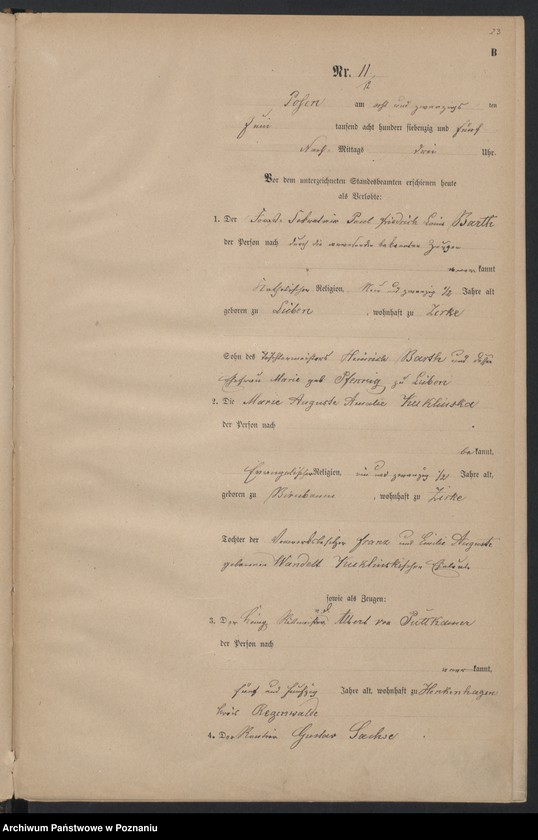 23
B
Nr. 11
12
Posen am acht und zwanzigs ten
Juni tausend acht hundert siebenzig und fünf
Nach- Mittags drei Uhr.
Vor dem unterzeichneten Standesbeamten erschienen heute
als Verlobte:
1. Der Sekretair Paul Friedrich Louis Barth
der Person nach durch die anwesenden bekannten Zeugen
kannt
Katholischer Religion, Neun und zwanzig 1/2 Jahre alt
geboren zu Lüben, wohnhaft zu Zirke
Sohn des Tischlermeisters Heinrich Barth und dessen
Ehefrau Marie geb Pfennig zu Lüben
2. Die Marie Auguste Amalie Kuklinska
der Person nach
be kannt,
Evangelischer Religion, ein und zwanzig 1/2 Jahre alt,
geboren zu Birnbaum, wohnhaft zu Zirke
Tochter der Franz und Emilie Auguste
geborenen Wandelt Eheleute
sowie als Zeugen:
3. Der Königl Albert von Puttkamer
der Person nach
kannt,
fünf und fünfzig Jahre alt, wohnhaft zu Henkenhagen
Kreis Regenwalde
4. Der Rentier Gustav Sachse
Archiwum Państwowe w Poznaniu